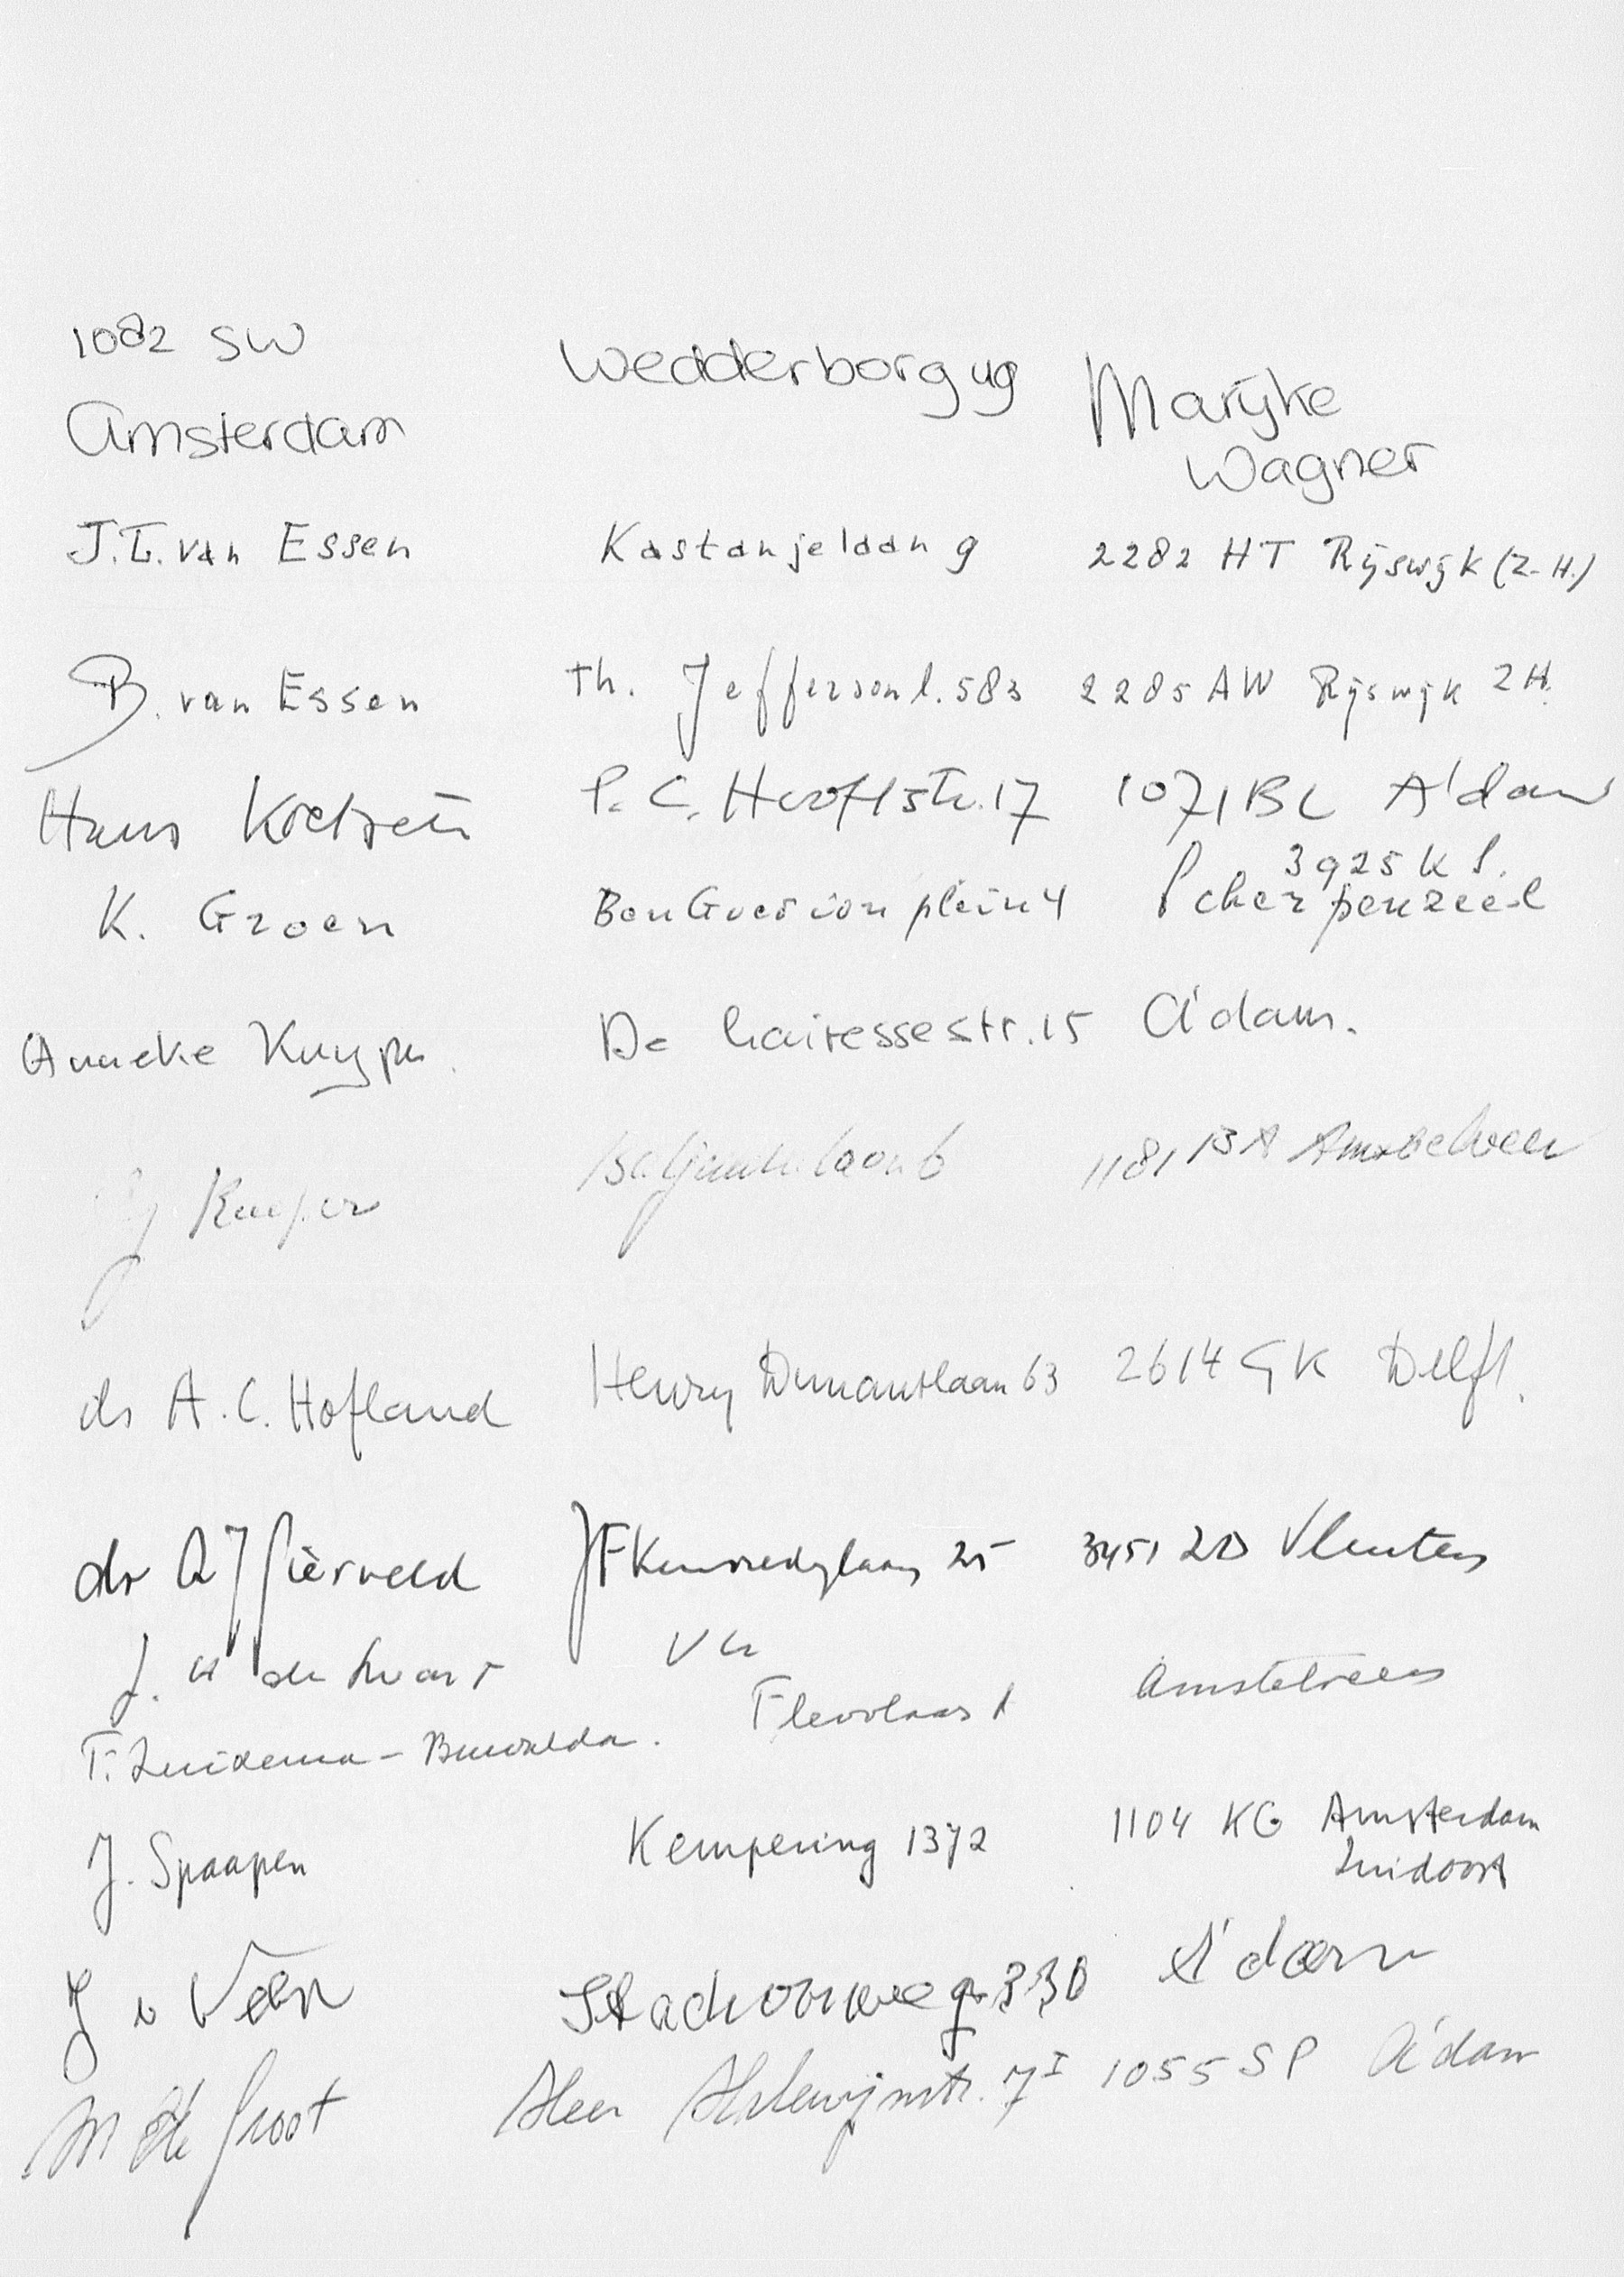 1082 SW Wedderborg 49 Marijke
Amsterdam Wagner
J.L. van Essen Kastanjelaan 9 2282 HT Rijswijk (Z-H.)
B. van Essen Th. Jefferson l. 583 2285 AW Rijswijk ZH.
Hans P.C. Hooftstr. 17 1071 BL A'dam
3925 K
K. Groen Ben Goerion plein 4 Scherpenzeel
Anneke Kuyper De Lairessestr. 15 A'dam.
Kuyper laan 6 1181 BA Amstelveen
ds A.C. Hofland Henry Dunantlaan 63 2614 GK Delft.
dr JF Kennedylaan 25 3451 ZD Vleuten
J. de Zwart
T. Zuidema - Flevolaan Amstelveen
J. Spaapen Kempering 1372 1104 KG Amsterdam
Zuidoost
J v Veen 330 A'dam
M de Groot Heer Halewijnstr. 7 I 1055 SP A'dam